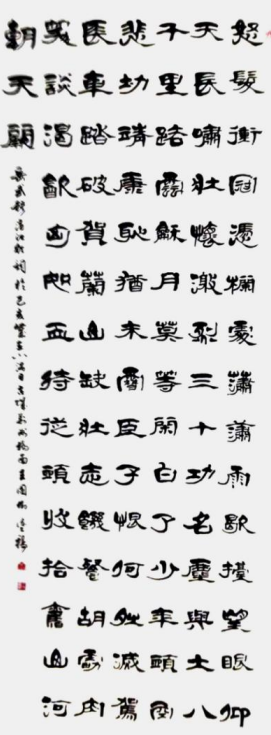 怒髮衝冠憑欄處瀟瀟雨歇擡望眼仰
天長嘯壯懷激烈三十功名塵與土八
千里路雲龢月莫等閒白了少年頭空
悲切靖康恥猶未雪臣子恨何時滅駕
長車踏破賀蘭山缺壯志饑餐胡虜肉
笑談渴飲匈奴血待從頭收拾舊山河
朝天闕
岳武穆滿江紅詞於己亥